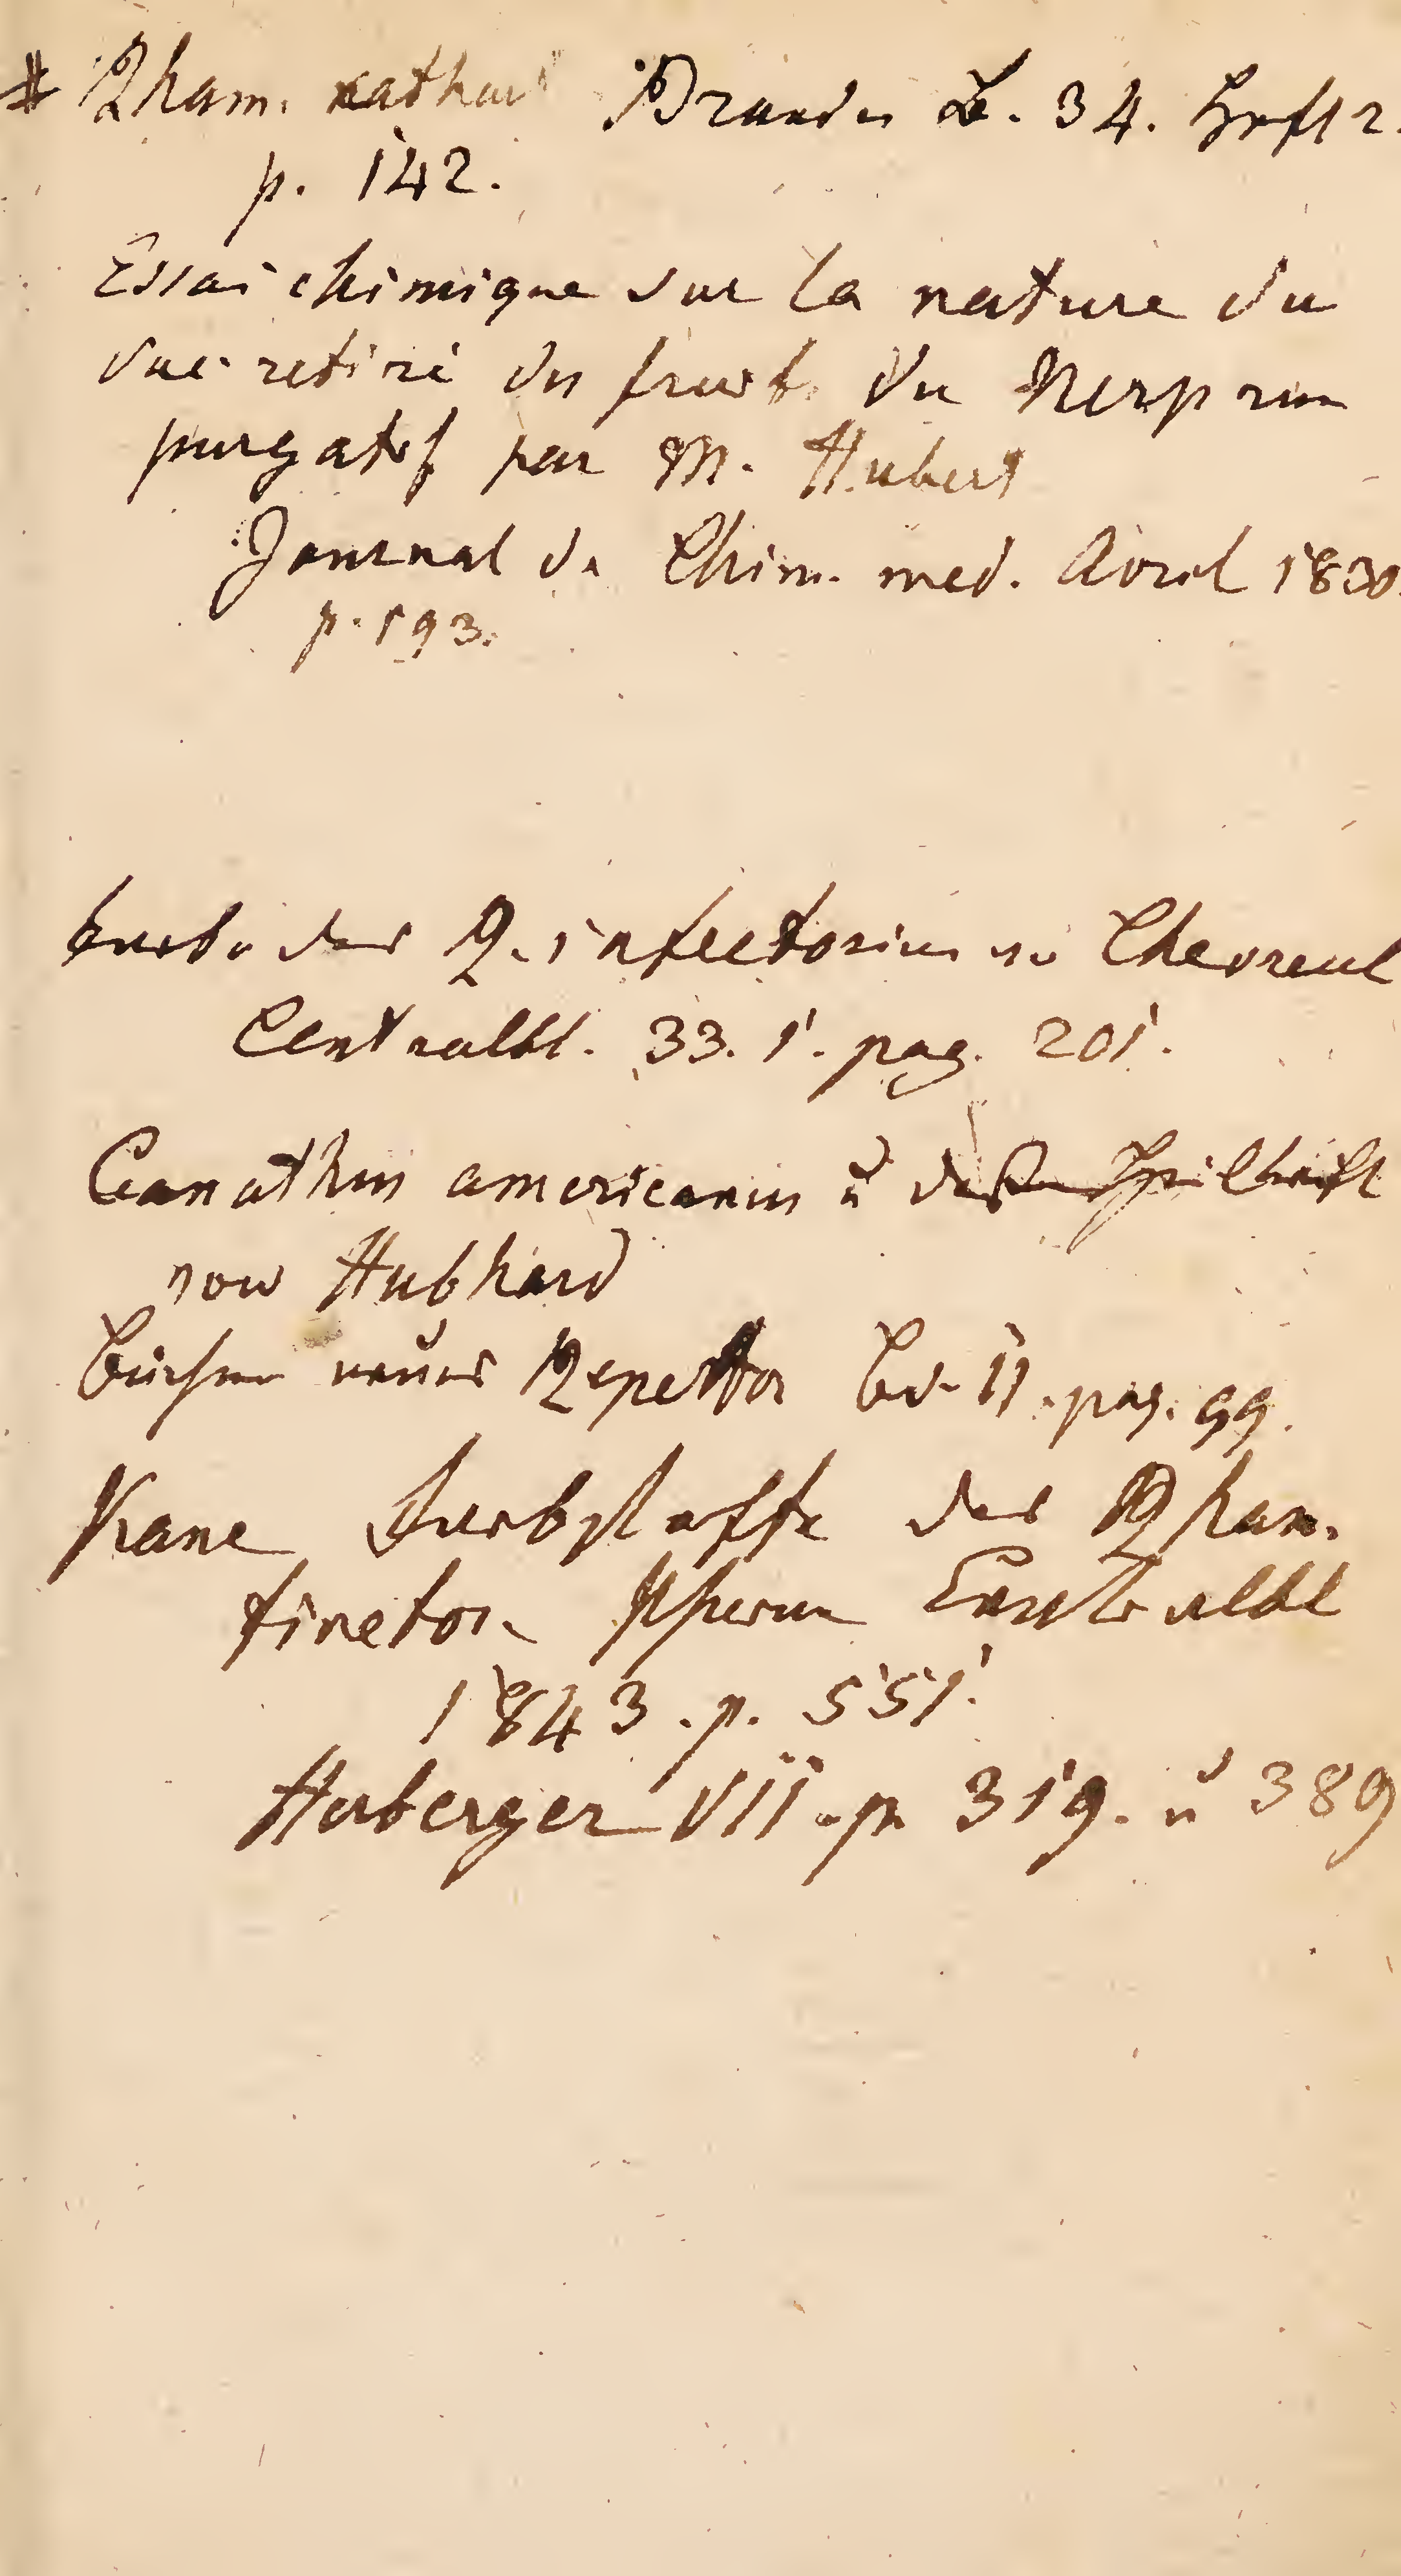 # Rham. cathar Brandes B. 34. Heft 2.
p. 142.
Essai chimique sur la nature du
suc retiré du fruit du Nerprun
purgatif par M. Hubert
Journal de Chim. med. Avril 1830.
p. 193.
Farbe des R. infectorius v. Chevreul
Centralbl. 33. 1. pag. 201.
Ceanothus americanus u dessen Heilkraft
von Hubhard
Buchner neues Repertor Bd. 11. pag. 99.
Kane Farbstoffe der Rham.
tinctor. Pharm Centralbl
1843. p. 551.
Herberger VII. p. 319. u 389